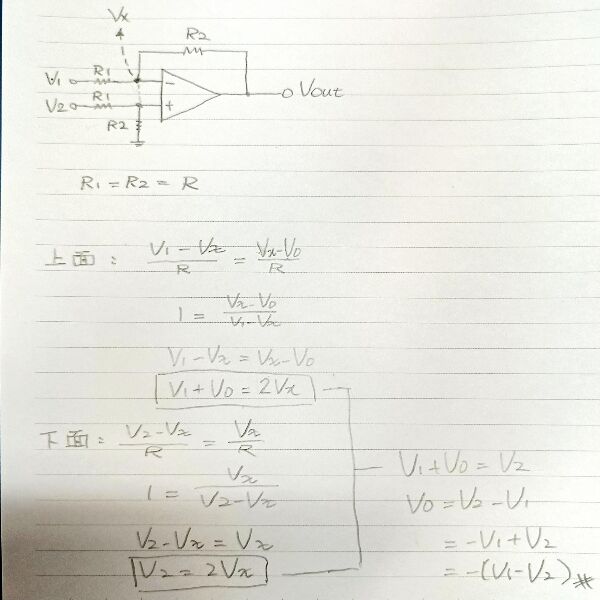 Vx
R2
V1 R1 −
V2 R1 + Vout
R2
R1 = R2 = R
上面: (V1 − Vx)/R = (Vx−V0)/R
1 = (Vx−V0)/(V1−Vx)
V1−Vx = Vx−V0
V1+V0 = 2Vx
下面: (V2−Vx)/R = Vx/R
1 = Vx/(V2−Vx)
V2−Vx = Vx
V2 = 2Vx
V1+V0 = V2
V0 = V2−V1
= −V1+V2
= −(V1−V2)※